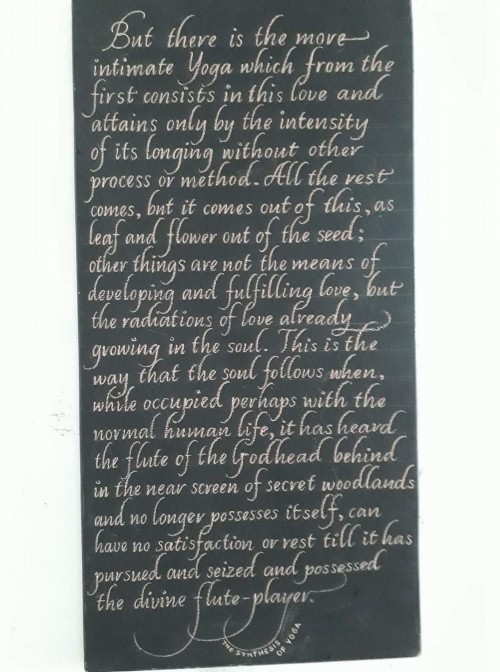 But there is the more
intimate Yoga which from the
first consists in this love and
attains only by the intensity
of its longing without other
process or method. All the rest
comes, but it comes out of this, as
leaf and flower out of the seed;
other things are not the means of
developing and fulfilling love, but
the radiations of love already
growing in the soul. This is the
way that the soul follows when,
while occupied perhaps with the
normal human life, it has heard
the flute of the Godhead behind
in the near screen of secret woodlands
and no longer possesses itself, can
have no satisfaction or rest till it has
pursued and seized and possessed
the divine flute-player.
THE SYNTHESIS OF YOGA